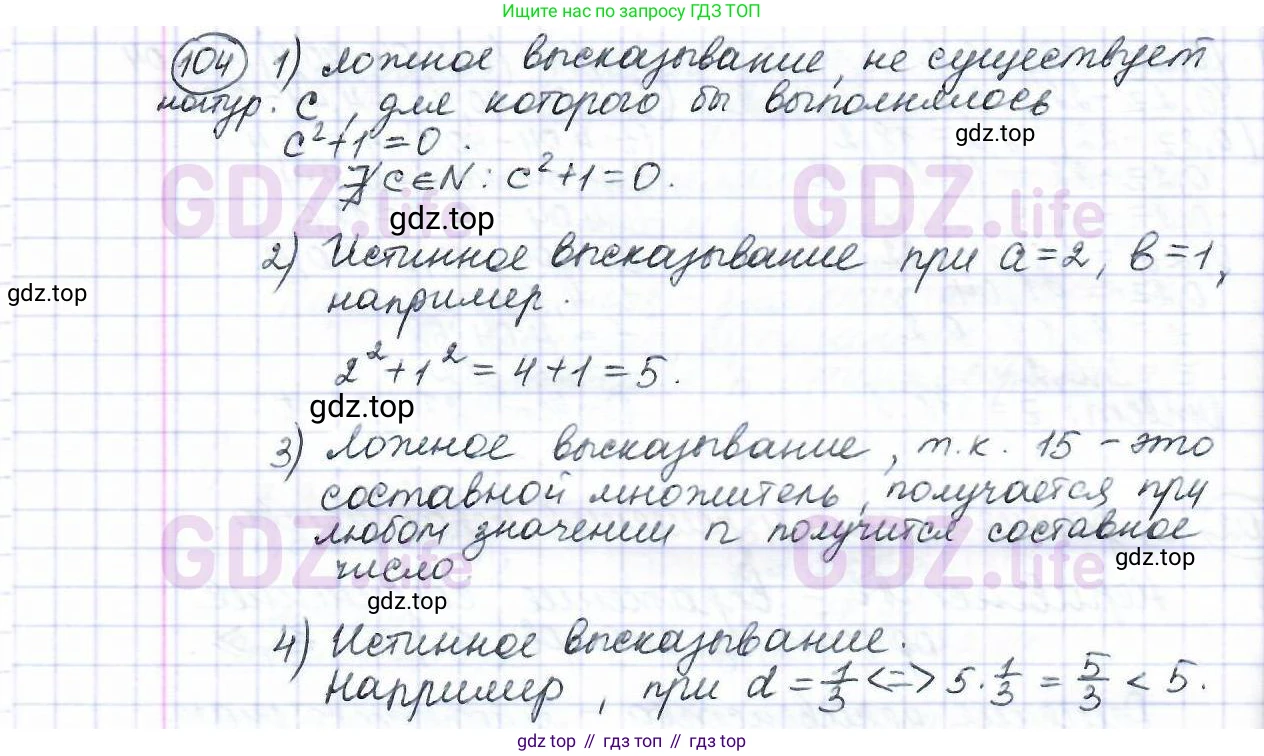 Ищите нас по запросу ГДЗ ТОП
104 1) Ложное высказывание, не существует
натур. c, для которого бы выполнялось
gdz.top
c²+1=0.
∄ c∈N: c²+1=0.
GDZ.life GDZ.life
gdz.top
2) Истинное высказывание при a=2, b=1,
gdz.top
например.
2²+1²=4+1=5.
gdz.top
3) Ложное высказывание, т.к. 15 – это
составной множитель, получается при
любом значении n получится составное
GDZ.life GDZ.life
gdz.top
число
gdz.top
4) Истинное высказывание.
Например, при d=1/3 <=> 5·1/3=5/3<5.
gdz.top // гдз топ // gdz.top